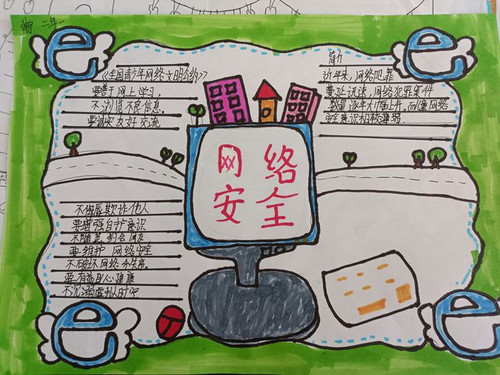 《全国青少年网络文明公约》
要善于网上学习,
不浏览不良信息.
要诚实友好交流
近年来,网络犯罪
蔓延迅速,网络犯罪案件
数量逐年大幅上升,而 网络
安全意识相较薄弱
网络
安全
不侮辱欺诈他人
要增强自护意识
不随意约会网友
要维护网络安全
不破坏网络秩序
要有益身心健康
不沉溺虚拟时空
e
e
e
e